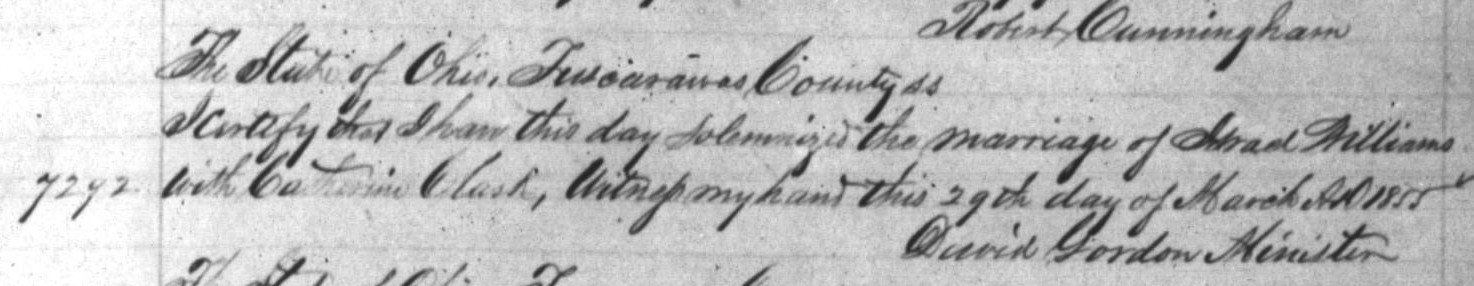 Robert Cunningham
The State of Ohio, Tuscarawas County ss
I certify that I have this day solemnized the marriage of Israel Williams
7292 with Catherine Clark, Witness my hand this 29th day of March A.D 1855
David Gordon Minister
The State of Ohio